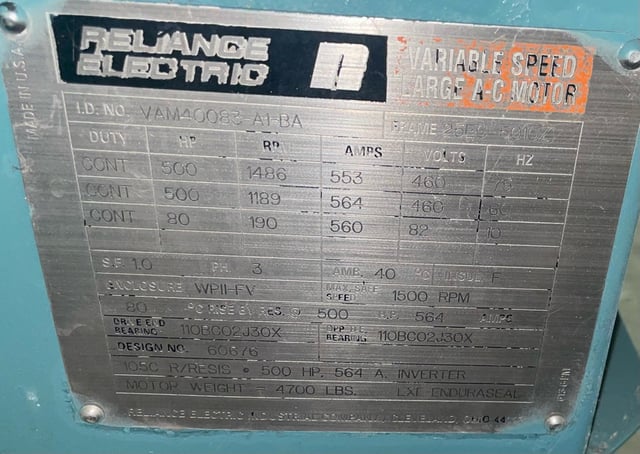 MADE IN U.S.A.
RELIANCE ELECTRIC R
VARIABLE SPEED
LARGE A-C MOTOR
I.D. NO. VAM40083-A1-BA FRAME
DUTY HP RPM AMPS VOLTS HZ
CONT 500 1486 553 460 75
CONT 500 1189 564 460 60
CONT 80 190 560 82 10
S.F. 1.0 PH. 3 AMB. 40 °C INSUL. F
ENCLOSURE WPII-FV MAX. SAFE SPEED 1500 RPM
80 °C RISE BY RES. @ 500 H.P. 564 AMPS
DRIVE END BEARING 110BC02J30X OPP. D.E. BEARING 110BC02J30X
DESIGN NO. 60676
105C R/RESIS @ 500 HP, 564 A. INVERTER
MOTOR WEIGHT = 4700 LBS. LXE ENDURASEAL
RELIANCE ELECTRIC INDUSTRIAL COMPANY / CLEVELAND, OHIO 44